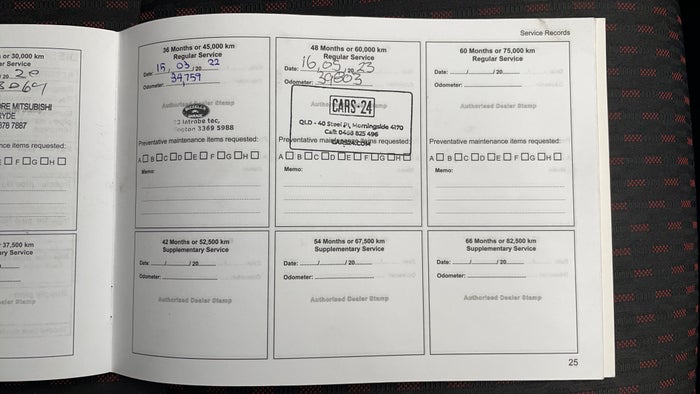 Service Records
or 30,000 km
ar Service
/ 20 20
ORE MITSUBISHI
RYDE
878 7887
nce items requested:
E F G H
37,500 km
ary Service
/20
aler Stamp
36 Months or 45,000 km
Regular Service
Date: 15 / 03 / 20 22
Odometer: 34,759
Authorised Dealer Stamp
3369 5988
Preventative maintenance items requested:
A B C D E F G H
Memo:
48 Months or 60,000 km
Regular Service
Date: 16 / 05 / 20 23
Odometer: 39803
CARS24
QLD - 40 Steel Pl, Morningside 4170
Call: 0488 825 496
CARS24.COM
Preventative maintenance items requested:
A B C D E F G H
Memo:
60 Months or 75,000 km
Regular Service
Date: / / 20
Odometer:
Authorised Dealer Stamp
Preventative maintenance items requested:
A B C D E F G H
Memo:
42 Months or 52,500 km
Supplementary Service
Date: / / 20
Odometer:
Authorised Dealer Stamp
54 Months or 67,500 km
Supplementary Service
Date: / / 20
Odometer:
Authorised Dealer Stamp
66 Months or 82,500 km
Supplementary Service
Date: / / 20
Odometer:
Authorised Dealer Stamp
25